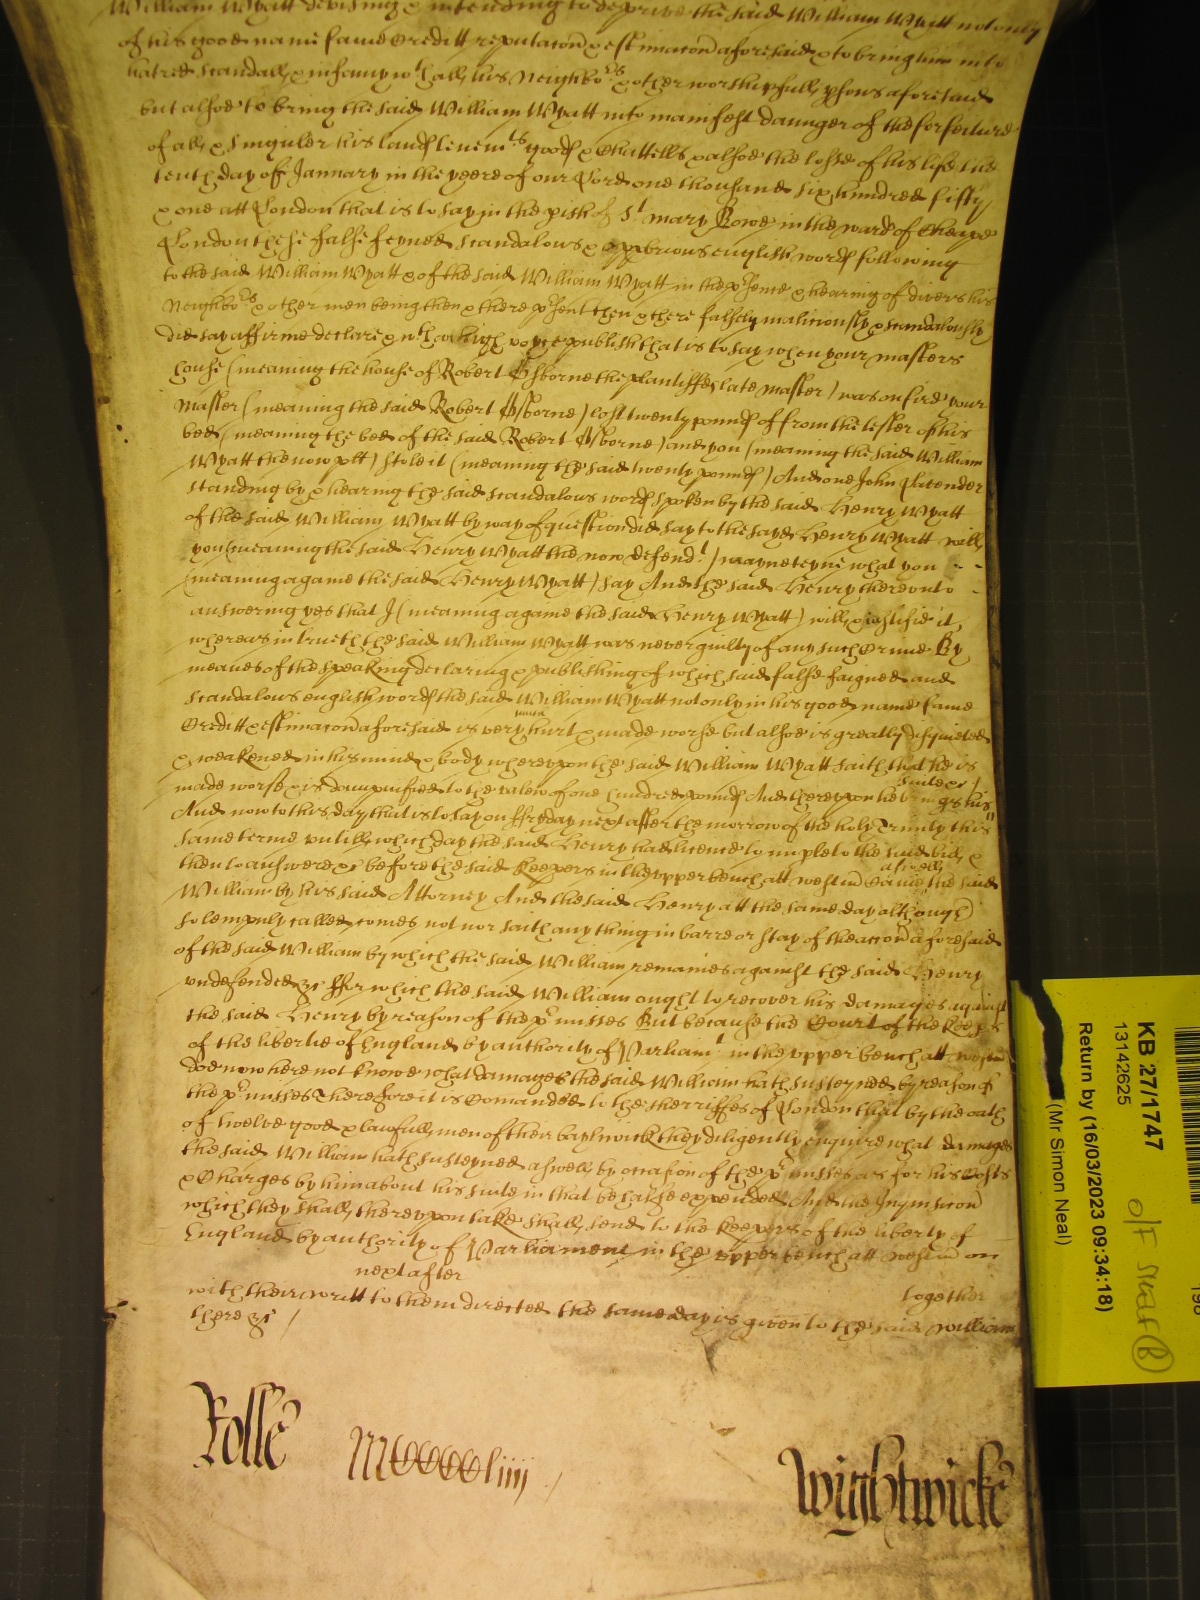 William Wyatt devising & intending to deprive the said William Wyatt not only
of his good name fame Creditt reputacon & estimacon aforesaid & to bring him into
hatred scandall & infamy wth all his Neighbors & other worshipfull psons aforesaid
but alsoe to bring the said William Wyatt into manifest daunger of the forfeiture
of all & singuler his lands tenemts goods & Chattells & alsoe the losse of his life the
tenth day of January in the yeere of our Lord one thousand six hundred fifty
& one att London that is to say in the pish of St mary Bowe in the ward of Cheape
London these false feyned scandalous & opprobrious english words following
to the said William Wyatt & of the said William Wyatt in the psence & hearing of divers his
Neighbors & other men being then & there psent then & there falsely maliciously & scandalously
did say affirme declare & wth an high voyce publish that is to say when your masters
house (meaning the house of Robert Osborne the plantiffes late master) was on fire your
Master (meaning the said Robert Osborne) lost twenty pounds of from the tester of his
bed (meaning the bed of the said Robert Osborne) and you (meaning the said William
Wyatt the now plt) stole it (meaning the said twenty pounds) And one John
standing by & hearing the said scandalous words spoken by the said Henry Wyatt
of the said William Wyatt by way of question did say to the sayd Henry Wyatt will
you (meaning the said Henry Wyatt the now defendt) mayneteyne what you
(meaning againe the said Henry Wyatt) say And the said Henry thereonto
answering yes that I (meaning againe the said Henry Wyatt) will & justifie it,
whereas in trueth the said William Wyatt was never guilty of any such Crime By
meanes of the speaking declaring & publishing of which said false faigned and
scandalous english words the said William Wyatt not only in his good name fame
Creditt & estimacon aforesaid is very much hurt & made worse but alsoe is greatly disquieted
& weakened in his mind & body wherevpon the said William Wyatt saith that he is
made worse & is dampnified to the valew of one hundred pounds And therevpon he brings his suite &c /
And now to this day that is to say on ffryday next after the morrow of the holy Trinity this
same terme vntill which day the said Henry had licence to imple to the said bill &
then to answere &c before the said Keepers in the vpper bench att westm came aswell the said
William by his said Attorney And the said Henry att the same day although
solempnly called comes not nor saith any thing in barre or stay of the accon aforesaid
of the said William by which the said William remaines against the said Henry
vndefended &c ffor which the said William ought to recover his damages against
the said Henry by reason of the pmisses But because the Court of the Keeps
of the libertie of England by authority of Parliamt in the vpper bench att westm
doe now here not knowe what damages the said William hath susteyned by reason of
the pmisses Therefore it is Comanded to the sherriffes of London that by the oath
of twelve good & lawfull men of their baylywick they diligently enquire what damages
the said William hath susteyned aswell by occasion of the pmisses as for his Costs
& Charges by him about his suite in that behalfe expended And the Inquisicon
which they shall therevpon take shall send to the Keepers of the liberty of
England by authority of Parliament in the vpper bench att westm on
next after together
with their writt to them directed the same day is given to the said William
there &c /
Rolle MCCCCCliiij Wightwicke
KB 27/1747
13142625
Return by (16/03/2023 09:34:18)
(Mr Simon Neal)